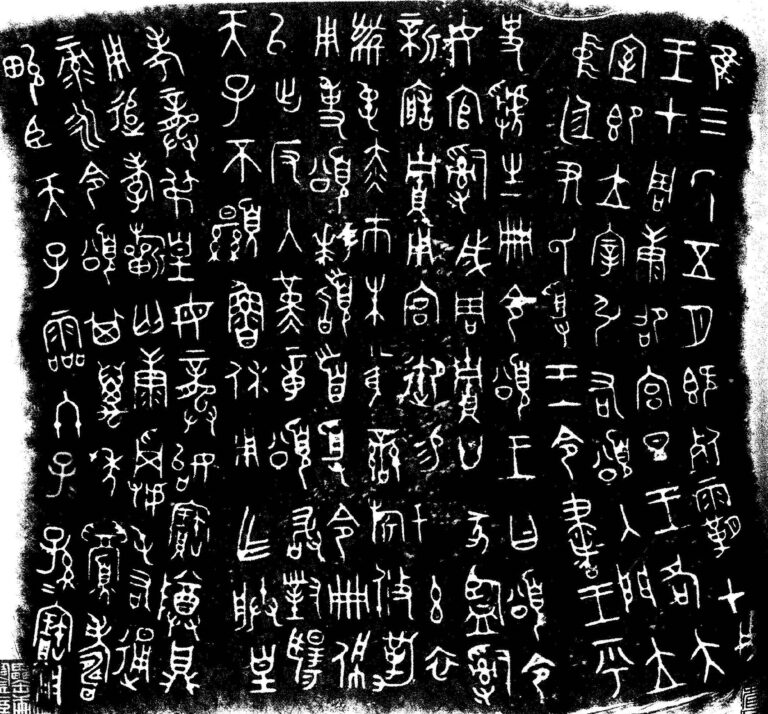 隹三年五月既死霸甲戌
王才周康卲宮旦王各大
室即立宰引右頌入門立
中廷尹氏受王令書王乎
史虢生冊令頌王曰頌令
女官𤔲成周賈廿家監𤔲
新造賈用宮御易女玄衣
黹屯赤巿朱黃䜌旂攸勒
用事頌拜𩒨首受令冊佩
以出反入堇章頌敢對揚
天子不顯魯休用乍朕皇
考龏弔皇母龏始寶尊鼎
用追孝祈匄康虔屯右通
彔永令頌其萬年眉壽
畯臣天子霝冬子孫寶用